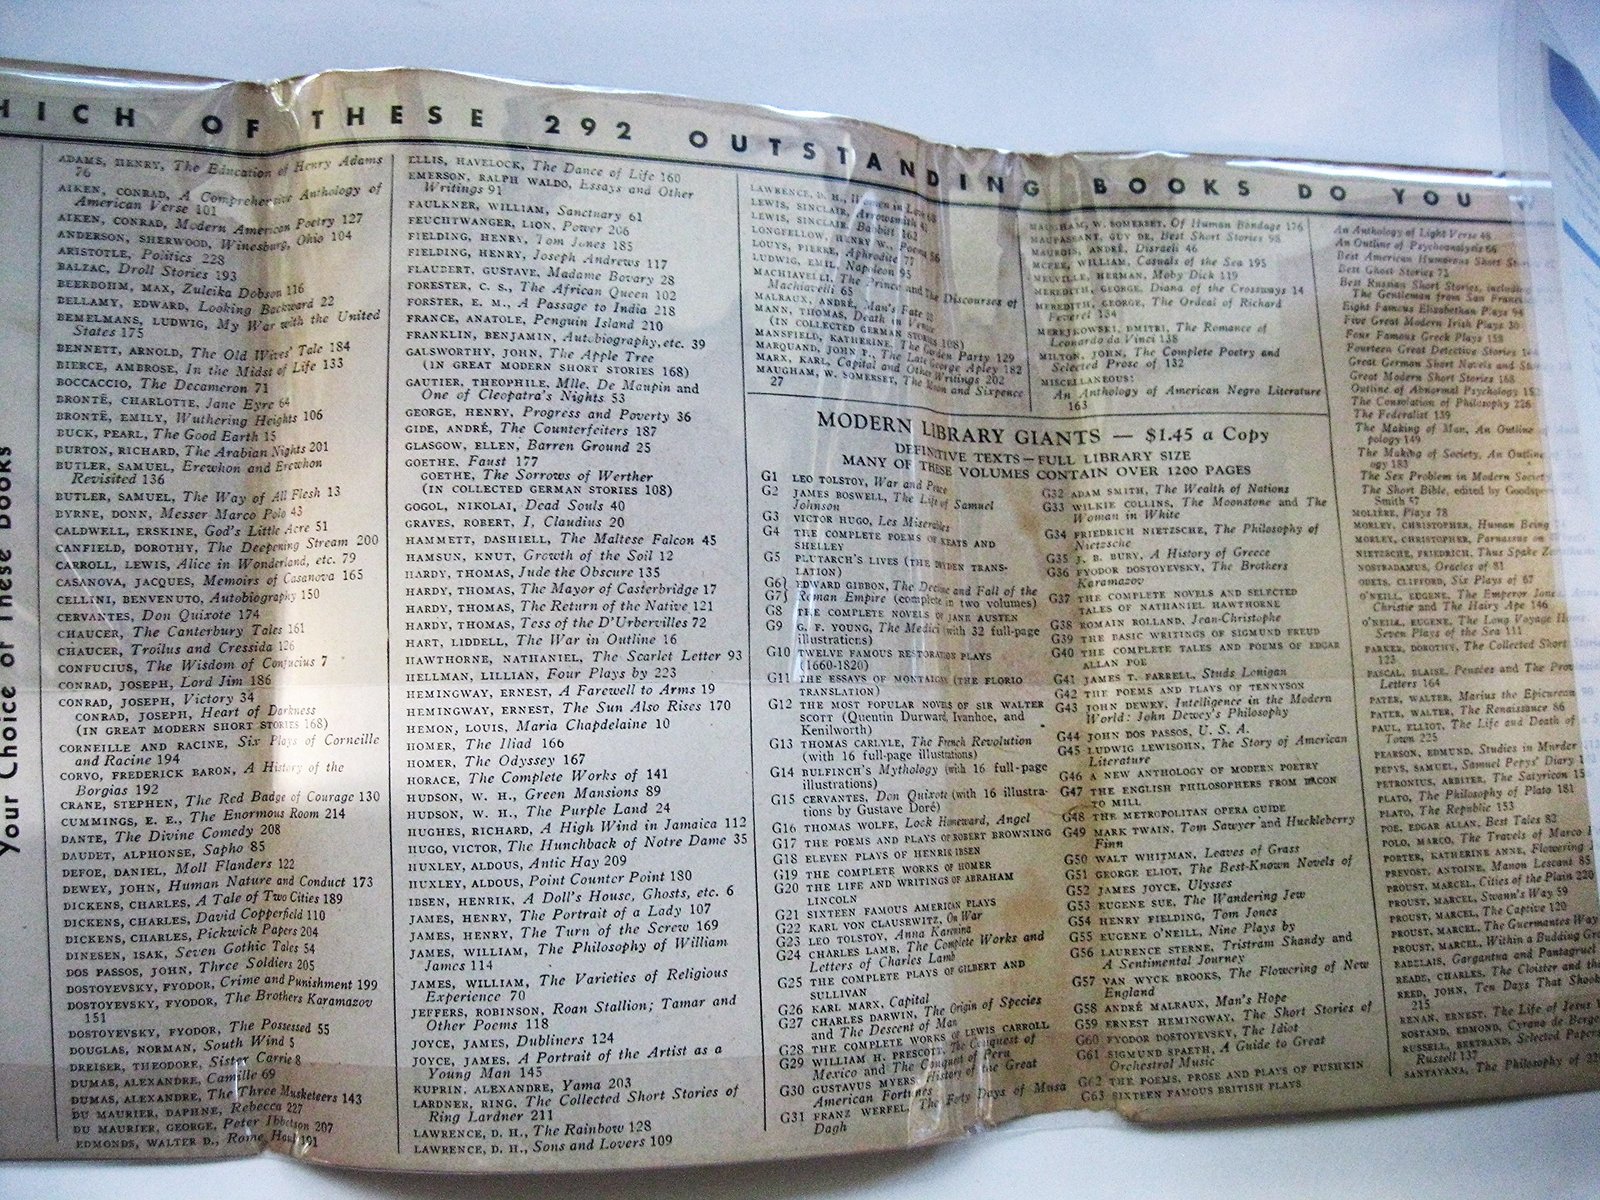 HICH OF THESE 292 OUTSTANDING BOOKS DO YOU
your Choice of These Books
ADAMS, HENRY, The Education of Henry Adams
76
AIKEN, CONRAD, A Comprehensive Anthology of
American Verse 101
AIKEN, CONRAD, Modern American Poetry 127
ANDERSON, SHERWOOD, Winesburg, Ohio 104
ARISTOTLE, Politics 228
BALZAC, Droll Stories 193
BEERBOHM, MAX, Zuleika Dobson 116
BELLAMY, EDWARD, Looking Backward 22
BEMELMANS, LUDWIG, My War with the United
States 175
BENNETT, ARNOLD, The Old Wives' Tale 184
BIERCE, AMBROSE, In the Midst of Life 133
BOCCACCIO, The Decameron 71
BRONTË, CHARLOTTE, Jane Eyre 64
BRONTË, EMILY, Wuthering Heights 106
BUCK, PEARL, The Good Earth 15
BURTON, RICHARD, The Arabian Nights 201
BUTLER, SAMUEL, Erewhon and Erewhon
Revisited 136
BUTLER, SAMUEL, The Way of All Flesh 13
BYRNE, DONN, Messer Marco Polo 43
CALDWELL, ERSKINE, God's Little Acre 51
CANFIELD, DOROTHY, The Deepening Stream 200
CARROLL, LEWIS, Alice in Wonderland, etc. 79
CASANOVA, JACQUES, Memoirs of Casanova 165
CELLINI, BENVENUTO, Autobiography 150
CERVANTES, Don Quixote 174
CHAUCER, The Canterbury Tales 161
CHAUCER, Troilus and Cressida 126
CONFUCIUS, The Wisdom of Confucius 7
CONRAD, JOSEPH, Lord Jim 186
CONRAD, JOSEPH, Victory 34
CONRAD, JOSEPH, Heart of Darkness
(IN GREAT MODERN SHORT STORIES 168)
CORNEILLE AND RACINE, Six Plays of Corneille
and Racine 194
CORVO, FREDERICK BARON, A History of the
Borgias 192
CRANE, STEPHEN, The Red Badge of Courage 130
CUMMINGS, E. E., The Enormous Room 214
DANTE, The Divine Comedy 208
DAUDET, ALPHONSE, Sapho 85
DEFOE, DANIEL, Moll Flanders 122
DEWEY, JOHN, Human Nature and Conduct 173
DICKENS, CHARLES, A Tale of Two Cities 189
DICKENS, CHARLES, David Copperfield 110
DICKENS, CHARLES, Pickwick Papers 204
DINESEN, ISAK, Seven Gothic Tales 54
DOS PASSOS, JOHN, Three Soldiers 205
DOSTOYEVSKY, FYODOR, Crime and Punishment 199
DOSTOYEVSKY, FYODOR, The Brothers Karamazov
151
DOSTOYEVSKY, FYODOR, The Possessed 55
DOUGLAS, NORMAN, South Wind 5
DREISER, THEODORE, Sister Carrie 8
DUMAS, ALEXANDRE, Camille 69
DUMAS, ALEXANDRE, The Three Musketeers 143
DU MAURIER, DAPHNE, Rebecca 227
DU MAURIER, GEORGE, Peter Ibbetson 207
EDMONDS, WALTER D., Rome Haul 191
ELLIS, HAVELOCK, The Dance of Life 160
EMERSON, RALPH WALDO, Essays and Other
Writings 91
FAULKNER, WILLIAM, Sanctuary 61
FEUCHTWANGER, LION, Power 206
FIELDING, HENRY, Tom Jones 185
FIELDING, HENRY, Joseph Andrews 117
FLAUBERT, GUSTAVE, Madame Bovary 28
FORESTER, C. S., The African Queen 102
FORSTER, E. M., A Passage to India 218
FRANCE, ANATOLE, Penguin Island 210
FRANKLIN, BENJAMIN, Autobiography, etc. 39
GALSWORTHY, JOHN, The Apple Tree
(IN GREAT MODERN SHORT STORIES 168)
GAUTIER, THEOPHILE, Mlle. De Maupin and
One of Cleopatra's Nights 53
GEORGE, HENRY, Progress and Poverty 36
GIDE, ANDRÉ, The Counterfeiters 187
GLASGOW, ELLEN, Barren Ground 25
GOETHE, Faust 177
GOETHE, The Sorrows of Werther
(IN COLLECTED GERMAN STORIES 108)
GOGOL, NIKOLAI, Dead Souls 40
GRAVES, ROBERT, I, Claudius 20
HAMMETT, DASHIELL, The Maltese Falcon 45
HAMSUN, KNUT, Growth of the Soil 12
HARDY, THOMAS, Jude the Obscure 135
HARDY, THOMAS, The Mayor of Casterbridge 17
HARDY, THOMAS, The Return of the Native 121
HARDY, THOMAS, Tess of the D'Urbervilles 72
HART, LIDDELL, The War in Outline 16
HAWTHORNE, NATHANIEL, The Scarlet Letter 93
HELLMAN, LILLIAN, Four Plays by 223
HEMINGWAY, ERNEST, A Farewell to Arms 19
HEMINGWAY, ERNEST, The Sun Also Rises 170
HEMON, LOUIS, Maria Chapdelaine 10
HOMER, The Iliad 166
HOMER, The Odyssey 167
HORACE, The Complete Works of 141
HUDSON, W. H., Green Mansions 89
HUDSON, W. H., The Purple Land 24
HUGHES, RICHARD, A High Wind in Jamaica 112
HUGO, VICTOR, The Hunchback of Notre Dame 35
HUXLEY, ALDOUS, Antic Hay 209
HUXLEY, ALDOUS, Point Counter Point 180
IBSEN, HENRIK, A Doll's House, Ghosts, etc. 6
JAMES, HENRY, The Portrait of a Lady 107
JAMES, HENRY, The Turn of the Screw 169
JAMES, WILLIAM, The Philosophy of William
James 114
JAMES, WILLIAM, The Varieties of Religious
Experience 70
JEFFERS, ROBINSON, Roan Stallion; Tamar and
Other Poems 118
JOYCE, JAMES, Dubliners 124
JOYCE, JAMES, A Portrait of the Artist as a
Young Man 145
KUPRIN, ALEXANDRE, Yama 203
LARDNER, RING, The Collected Short Stories of
Ring Lardner 211
LAWRENCE, D. H., The Rainbow 128
LAWRENCE, D. H., Sons and Lovers 109
LAWRENCE, D. H., Women in Love 68
LEWIS, SINCLAIR, Arrowsmith 42
LEWIS, SINCLAIR, Babbitt 162
LONGFELLOW, HENRY W., Poems 56
LOUYS, PIERRE, Aphrodite 77
LUDWIG, EMIL, Napoleon 95
MACHIAVELLI, The Prince and The Discourses of
Machiavelli 65
MALRAUX, ANDRÉ, Man's Fate 33
MANN, THOMAS, Death in Venice
(IN COLLECTED GERMAN STORIES 108)
MANSFIELD, KATHERINE, The Garden Party 129
MARQUAND, JOHN P., The Late George Apley 182
MARX, KARL, Capital and Other Writings 202
MAUGHAM, W. SOMERSET, The Moon and Sixpence
27
MAUGHAM, W. SOMERSET, Of Human Bondage 176
MAUPASSANT, GUY DE, Best Short Stories 98
MAUROIS, ANDRÉ, Disraeli 46
MCFEE, WILLIAM, Casuals of the Sea 195
MELVILLE, HERMAN, Moby Dick 119
MEREDITH, GEORGE, Diana of the Crossways 14
MEREDITH, GEORGE, The Ordeal of Richard
Feverel 134
MEREJKOWSKI, DMITRI, The Romance of
Leonardo da Vinci 138
MILTON, JOHN, The Complete Poetry and
Selected Prose of 132
MISCELLANEOUS:
An Anthology of American Negro Literature
163
MODERN LIBRARY GIANTS — $1.45 a Copy
DEFINITIVE TEXTS—FULL LIBRARY SIZE
MANY OF THESE VOLUMES CONTAIN OVER 1200 PAGES
G1 LEO TOLSTOY, War and Peace
G2 JAMES BOSWELL, The Life of Samuel
Johnson
G3 VICTOR HUGO, Les Miserables
G4 THE COMPLETE POEMS OF KEATS AND
SHELLEY
G5 PLUTARCH'S LIVES (THE DRYDEN TRANS-
LATION)
G6} EDWARD GIBBON, The Decline and Fall of the
G7} Roman Empire (complete in two volumes)
G8 THE COMPLETE NOVELS OF JANE AUSTEN
G9 G. F. YOUNG, The Medici (with 32 full-page
illustrations)
G10 TWELVE FAMOUS RESTORATION PLAYS
(1660-1820)
G11 THE ESSAYS OF MONTAIGNE (THE FLORIO
TRANSLATION)
G12 THE MOST POPULAR NOVELS OF SIR WALTER
SCOTT (Quentin Durward, Ivanhoe, and
Kenilworth)
G13 THOMAS CARLYLE, The French Revolution
(with 16 full-page illustrations)
G14 BULFINCH'S Mythology (with 16 full-page
illustrations)
G15 CERVANTES, Don Quixote (with 16 illustra-
tions by Gustave Doré)
G16 THOMAS WOLFE, Look Homeward, Angel
G17 THE POEMS AND PLAYS OF ROBERT BROWNING
G18 ELEVEN PLAYS OF HENRIK IBSEN
G19 THE COMPLETE WORKS OF HOMER
G20 THE LIFE AND WRITINGS OF ABRAHAM
LINCOLN
G21 SIXTEEN FAMOUS AMERICAN PLAYS
G22 KARL VON CLAUSEWITZ, On War
G23 LEO TOLSTOY, Anna Karenina
G24 CHARLES LAMB, The Complete Works and
Letters of Charles Lamb
G25 THE COMPLETE PLAYS OF GILBERT AND
SULLIVAN
G26 KARL MARX, Capital
G27 CHARLES DARWIN, The Origin of Species
and The Descent of Man
G28 THE COMPLETE WORKS OF LEWIS CARROLL
G29 WILLIAM H. PRESCOTT, The Conquest of
Mexico and The Conquest of Peru
G30 GUSTAVUS MYERS, History of the Great
American Fortunes
G31 FRANZ WERFEL, The Forty Days of Musa
Dagh
G32 ADAM SMITH, The Wealth of Nations
G33 WILKIE COLLINS, The Moonstone and The
Woman in White
G34 FRIEDRICH NIETZSCHE, The Philosophy of
Nietzsche
G35 J. B. BURY, A History of Greece
G36 FYODOR DOSTOYEVSKY, The Brothers
Karamazov
G37 THE COMPLETE NOVELS AND SELECTED
TALES OF NATHANIEL HAWTHORNE
G38 ROMAIN ROLLAND, Jean-Christophe
G39 THE BASIC WRITINGS OF SIGMUND FREUD
G40 THE COMPLETE TALES AND POEMS OF EDGAR
ALLAN POE
G41 JAMES T. FARRELL, Studs Lonigan
G42 THE POEMS AND PLAYS OF TENNYSON
G43 JOHN DEWEY, Intelligence in the Modern
World: John Dewey's Philosophy
G44 JOHN DOS PASSOS, U. S. A.
G45 LUDWIG LEWISOHN, The Story of American
Literature
G46 A NEW ANTHOLOGY OF MODERN POETRY
G47 THE ENGLISH PHILOSOPHERS FROM BACON
TO MILL
G48 THE METROPOLITAN OPERA GUIDE
G49 MARK TWAIN, Tom Sawyer and Huckleberry
Finn
G50 WALT WHITMAN, Leaves of Grass
G51 GEORGE ELIOT, The Best-Known Novels of
G52 JAMES JOYCE, Ulysses
G53 EUGENE SUE, The Wandering Jew
G54 HENRY FIELDING, Tom Jones
G55 EUGENE O'NEILL, Nine Plays by
G56 LAURENCE STERNE, Tristram Shandy and
A Sentimental Journey
G57 VAN WYCK BROOKS, The Flowering of New
England
G58 ANDRÉ MALRAUX, Man's Hope
G59 ERNEST HEMINGWAY, The Short Stories of
G60 FYODOR DOSTOYEVSKY, The Idiot
G61 SIGMUND SPAETH, A Guide to Great
Orchestral Music
G62 THE POEMS, PROSE AND PLAYS OF PUSHKIN
G63 SIXTEEN FAMOUS BRITISH PLAYS
An Anthology of Light Verse 48
An Outline of Psychoanalysis 66
Best American Humorous Short
Best Ghost Stories 73
Best Russian Short Stories, including
The Gentleman from San Franc
Eight Famous Elizabethan Plays 94
Five Great Modern Irish Plays 30
Four Famous Greek Plays 158
Fourteen Great Detective Stories 144
Great German Short Novels and
Great Modern Short Stories 168
Outline of Abnormal Psychology 152
The Consolation of Philosophy 226
The Federalist 139
The Making of Man, An Outline
pology 149
The Making of Society, An Outline
ogy 183
The Sex Problem in Modern Society
The Short Bible, edited by Goodspeed
Smith 57
MOLIÈRE, Plays 78
MORLEY, CHRISTOPHER, Human Being
MORLEY, CHRISTOPHER, Parnassus on
NIETZSCHE, FRIEDRICH, Thus Spake
NOSTRADAMUS, Oracles of 81
ODETS, CLIFFORD, Six Plays of 67
O'NEILL, EUGENE, The Emperor Jones,
Christie and The Hairy Ape 146
O'NEILL, EUGENE, The Long Voyage Home:
Seven Plays of the Sea 111
PARKER, DOROTHY, The Collected Short
123
PASCAL, BLAISE, Pensées and The Prov
Letters 164
PATER, WALTER, Marius the Epicurean
PATER, WALTER, The Renaissance 86
PAUL, ELLIOT, The Life and Death of
Town 225
PEARSON, EDMUND, Studies in Murder
PEPYS, SAMUEL, Samuel Pepys' Diary
PETRONIUS, ARBITER, The Satyricon 15
PLATO, The Philosophy of Plato 181
PLATO, The Republic 153
POE, EDGAR ALLAN, Best Tales 82
POLO, MARCO, The Travels of Marco
PORTER, KATHERINE ANNE, Flowering
PREVOST, ANTOINE, Manon Lescaut 85
PROUST, MARCEL, Cities of the Plain 220
PROUST, MARCEL, Swann's Way 59
PROUST, MARCEL, The Captive 120
PROUST, MARCEL, The Guermantes Way
PROUST, MARCEL, Within a Budding Gro
RABELAIS, Gargantua and Pantagruel
READE, CHARLES, The Cloister and the
REED, JOHN, Ten Days That Shook
215
RENAN, ERNEST, The Life of Jesus
ROSTAND, EDMOND, Cyrano de Berge
RUSSELL, BERTRAND, Selected Papers
Russell 137
SANTAYANA, The Philosophy of 22